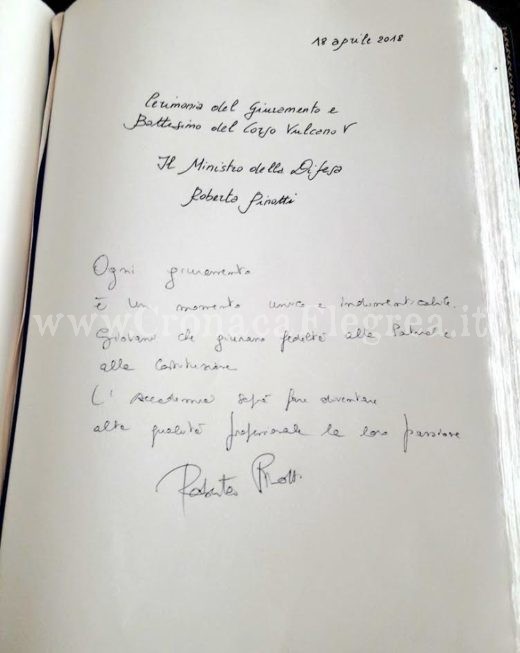 18 aprile 2018
Cerimonia del Giuramento e
Battesimo del Corso Vulcano V
Il Ministro della Difesa
Roberta Pinotti
Ogni giuramento
è un momento unico e indimenticabile.
www.CronacaFlegrea.it
Giovani che giurano fedeltà alla Patria e
alla Costituzione
L'Accademia saprà fare diventare
alta qualità professionale la loro passione
Roberta Pinotti